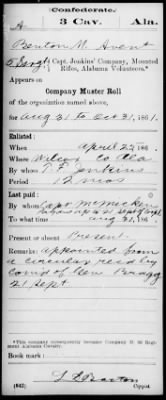 Confederate.
A 3 Cav. Ala.
Benton M. Avent
2 Sergt Capt. Jenkins' Company, Mounted
Rifles, Alabama Volunteers.*
Appears on
Company Muster Roll
of the organization named above,
for Aug 31 to Oct 31, 1861.
Enlisted:
When April 22, 186 .
Where Wilcox Co Ala
By whom T. F. Jenkins
Period 12 mos
Last paid:
By whom Capt
To what time Aug 31, 1861.
Present or absent Present
Remarks: Appointed from
a circular recd by
comd of Gen Bragg
21 Sept
*This company subsequently became Company H, 3d Regiment Alabama Cavalry.
Book mark:
(642) Copyist.